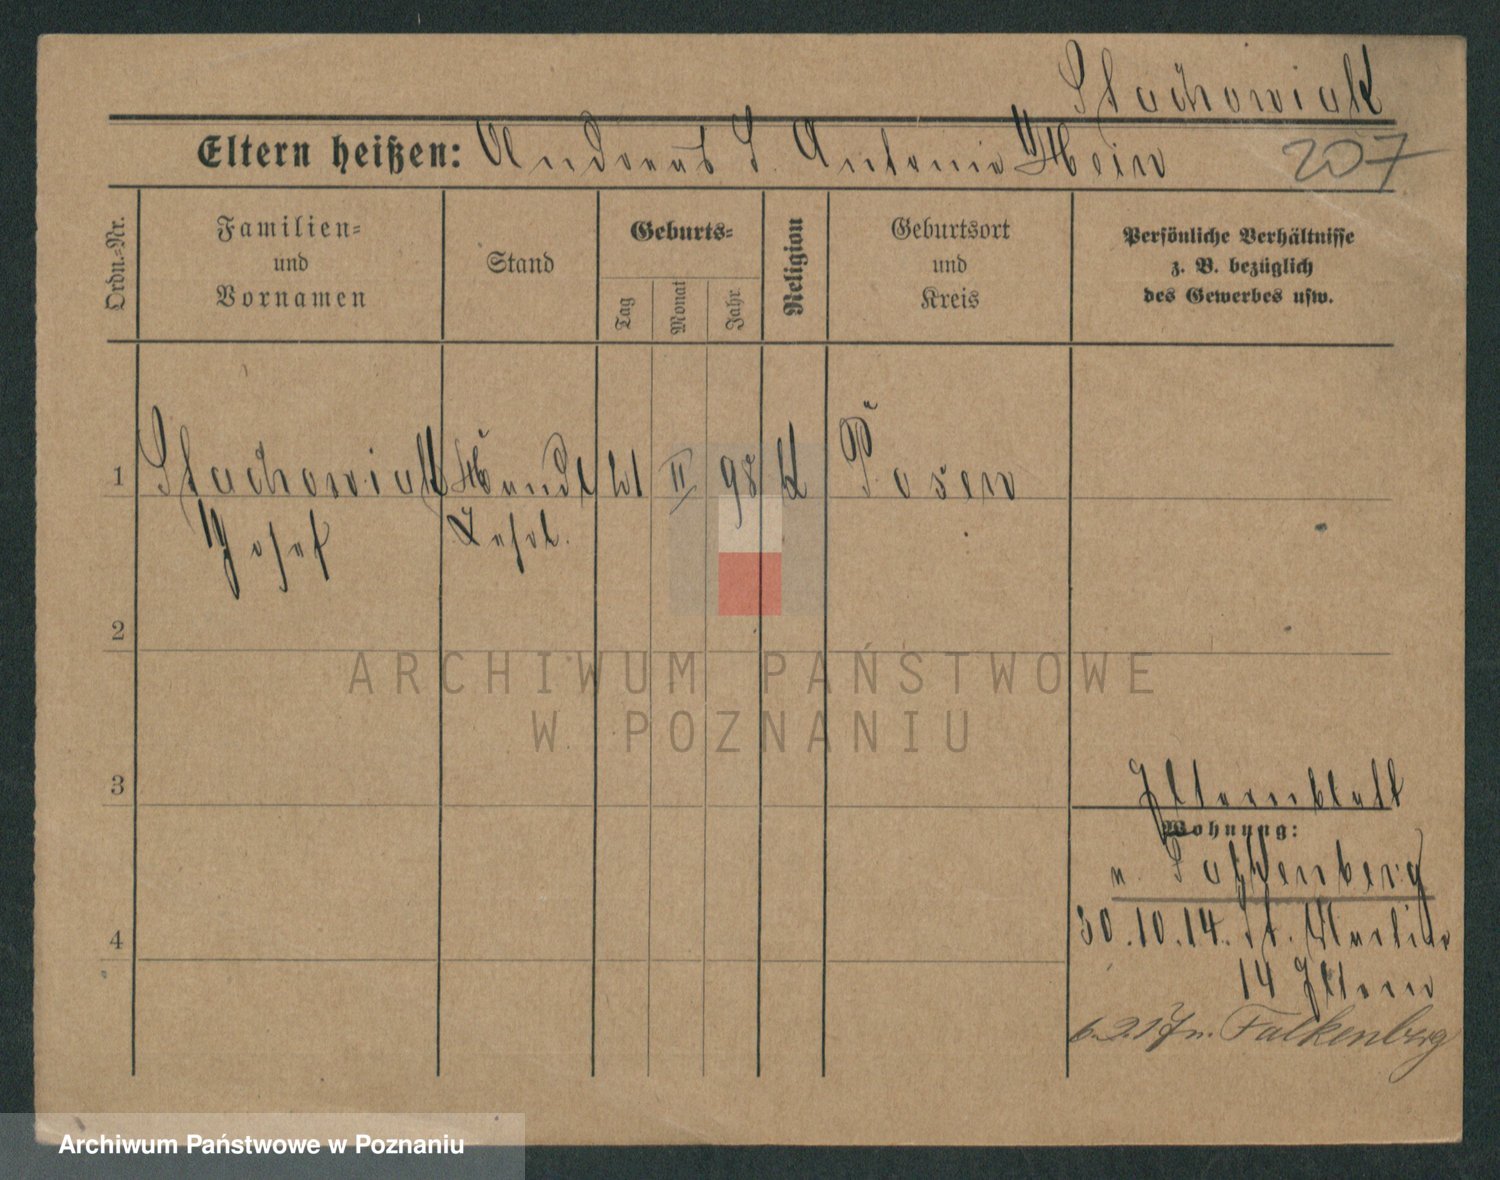 Stachowiak
Eltern heißen: Andreas S. Antonie Hein
207
Ordn.=Nr.
Familien=
und
Vornamen
Stand
Geburts=
Tag
Monat
Jahr
Religion
Geburtsort
und
Kreis
Persönliche Verhältnisse
z. B. bezüglich
des Gewerbes usw.
1
Stachowiak
Josef
Lehrl.
II
98
K
Posen
2
3
4
Elternblatt
Wohnung:
n.
30.10.14. St. Martin
14 Eltern
6.2.17 n. Falkenberg
ARCHIWUM PAŃSTWOWE
W POZNANIU
Archiwum Państwowe w Poznaniu